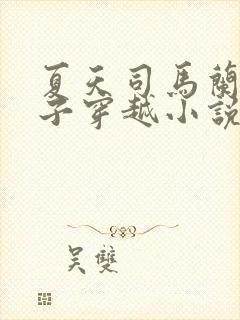 夏天司馬蘭
子穿越小說
吴雙